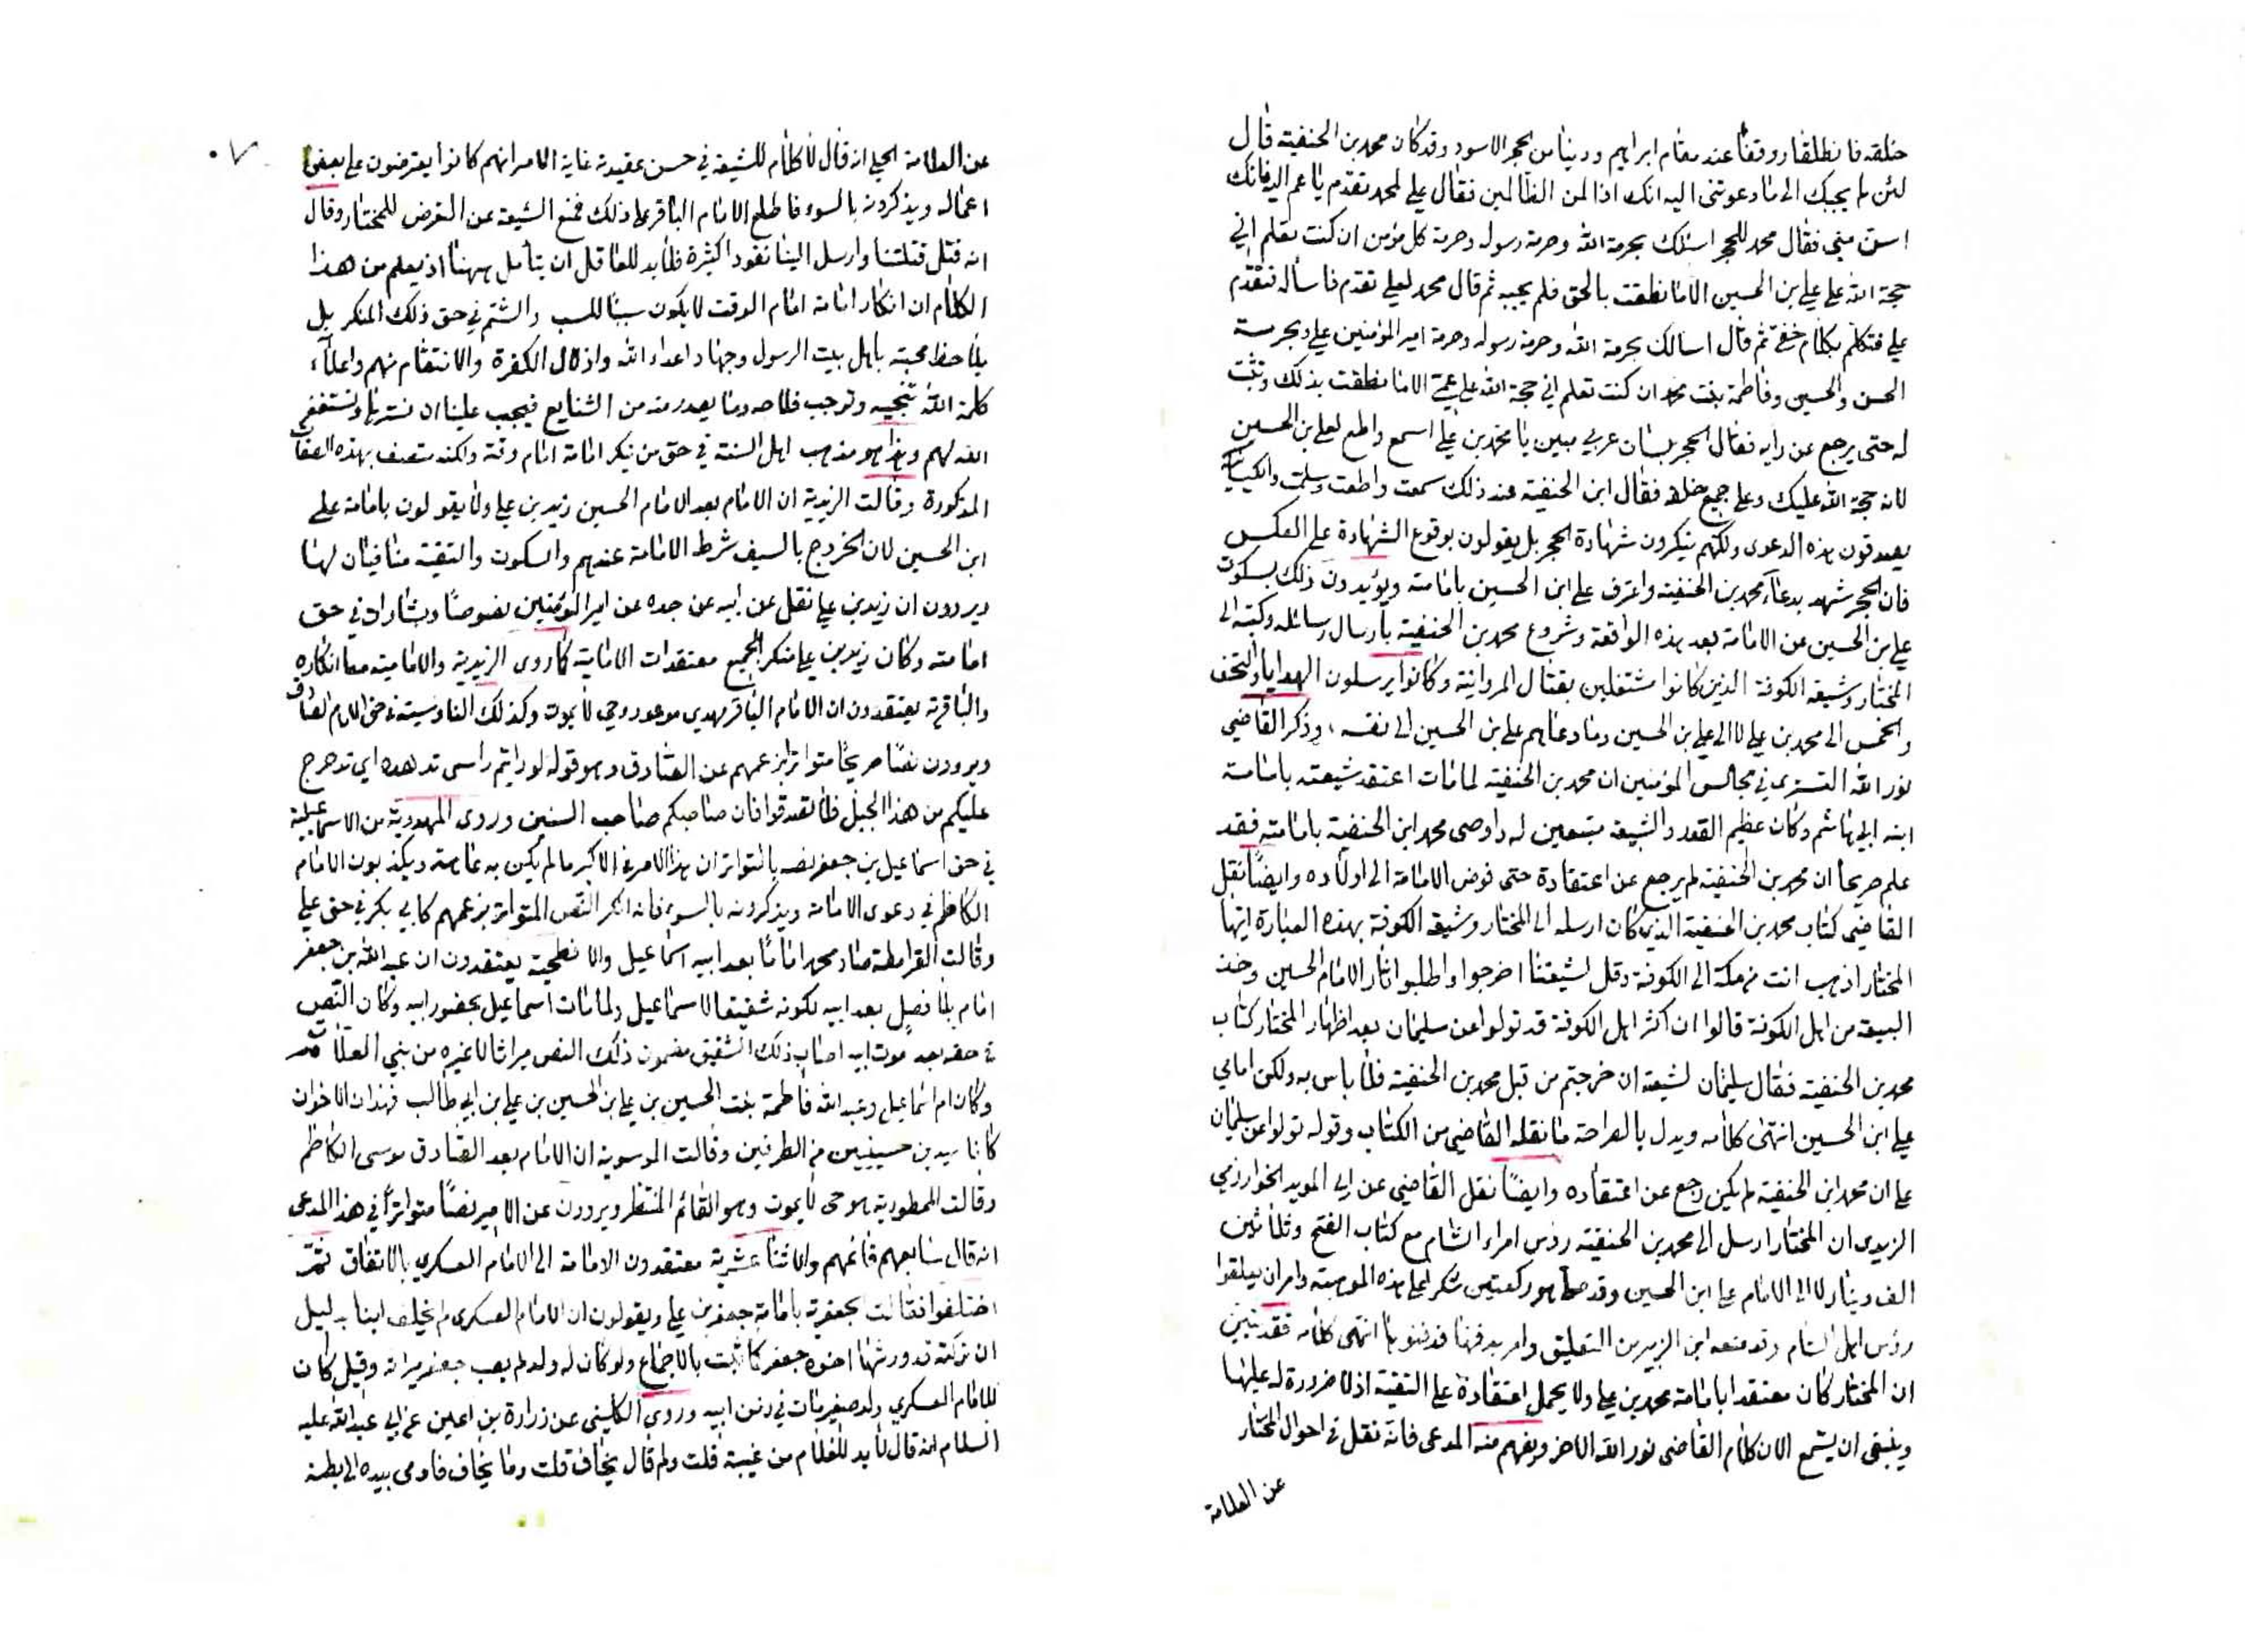 خلقه فانطلقا ووقفا عند مقام ابراهيم ودنيا من الحجر الاسود وقد كان محمد بن الحنفية قال
لئن لم يجبك الى ما دعوتني اليه انك اذا لمن الظالمين فقال علي لمحمد تقدم يا عم اليه فانك
اسن مني فقال محمد للحجر اسئلك بحرمة الله وحرمة رسوله وحرمة كل مؤمن ان كنت تعلم اني
حجة الله على علي بن الحسين الا ما نطقت بالحق فلم يجبه ثم قال محمد لعلي تقدم فاسأله فتقدم
علي فتكلم بكلام خفي ثم قال اسالك بحرمة الله وحرمة رسوله وحرمة امير المؤمنين علي وبحرمة
الحسن والحسين وفاطمة بنت محمد ان كنت تعلم اني حجة الله على عمي الا ما نطقت بذلك وتثبت
له حتى يرجع عن رايه فقال الحجر بلسان عربي مبين يا محمد بن علي اسمع واطع لعلي بن الحسين
لانه حجة الله عليك وعلى جميع خلقه فقال ابن الحنفية عند ذلك سمعت واطعت وسلمت والكيسانية
يصدقون بهذه الدعوى ولكنهم ينكرون شهادة الحجر بل يقولون بوقوع الشهادة على العكس
فان الحجر شهد بدعاء محمد بن الحنفية واعترف على ابن الحسين بامامته ويؤيدون ذلك بسكوت
علي بن الحسين عن الامامة بعد هذه الواقعة وشروع محمد بن الحنفية بارسال رسائله وكتبه الى
المختار وشيعة الكوفة الذين كانوا مشتغلين بقتال المروانية وكانوا يرسلون الهدايا والتحف
والخمس الى محمد بن علي لا الى علي بن الحسين وما دعاهم علي بن الحسين الى نفسه، وذكر القاضي
نور الله التستري في مجالس المؤمنين ان محمد بن الحنفية لما مات اعتقد شيعته بامامة
ابنه ابي هاشم وكان عظيم القدر والشيعة متبعين له واوصى محمد ابن الحنفية بامامته فقد
علم صريحا ان محمد بن الحنفية لم يرجع عن اعتقادة حتى فوض الامامة الى اولاده وايضًا نقل
القاضي كتاب محمد بن الحنفية الذي كان ارسله الى المختار وشيعة الكوفة بهذه العبارة ايها
المختار اذهب انت من مكة الى الكوفة وقل لشيعتنا اخرجوا واطلبوا اثار الامام الحسين وخذ
البيعة من اهل الكوفة قالوا ان اكثر اهل الكوفة قد تولوا عن سليمان بعد اظهار المختار كتاب
محمد بن الحنفية فقال سليمان لشيعته ان خرجتم من قبل محمد بن الحنفية فلا باس به ولكن امامي
علي ابن الحسين انتهى كلامه ويدل بالصراحة ما نقله القاضي من الكتاب وقوله تولوا عن سليمان
على ان محمد ابن الحنفية لم يكن رجع عن اعتقاده وايضًا نقل القاضي عن ابي المويد الخوارزمي
الزيدي ان المختار ارسل الى محمد بن الحنفية رؤس امراء الشام مع كتاب الفتح وثلاثين
الف دينار لا الى الامام علي ابن الحسين وقد صلى هو ركعتين شكرا على هذه الموهبة وامر ان يعلقوا
رؤس اهل الشام وقد منعه ابن الزبير من التعليق وامر بدفنها فدفنوها انتهى كلامه فقد تبين
ان المختار كان معتقدا بامامة محمد بن علي ولا يحمل اعتقادة على التقية اذ لا ضرورة له عليها
وينبغي ان يستمع الان كلام القاضي نور الله الاخر ويفهم منه المدعى فانه نقل في احوال المختار
عن العلامة
عن العلامة الحلي انه قال لا كلام للشيعة في حسن عقيدته غاية الامر انهم كانوا يعترضون على بعض
اعماله ويذكرونه بالسوء فاطلع الامام الباقر على ذلك فمنع الشيعة عن التعرض للمختار وقال
انه قتل قتلتنا وارسل الينا نقودا كثيرة فلا بد للعاقل ان يتأمل ههنا اذ يعلم من هذا
الكلام ان انكار امامة امام الوقت لا يكون سببًا للسب والشتم في حق ذلك المنكر بل
يلاحظ محبته باهل بيت الرسول وجهاد اعداء الله واذلال الكفرة والانتقام منهم واعلاء
كلمة الله تنجيه وتوجب خلاصه وما يصدر منه من الشنايع فيجب علينا ان نسترها ونستغفر
الله لهم وهذا هو مذهب اهل السنة في حق من ينكر امامة امام وقته ولكنه متصف بهذه الصفات
المذكورة وقالت الزيدية ان الامام بعد الامام الحسين زيد بن علي ولا يقولون بامامة علي
ابن الحسين لان الخروج بالسيف شرط الامامة عندهم والسكوت والتقية منافيان لها
ويروون ان زيد بن علي نقل عن ابيه عن جده عن امير المؤمنين نصوصًا وبشارات في حق
امامته وكان زيد بن علي منكر الجميع معتقدات الامامية كما روى الزيدية والامامية معا انكاره
والباقرية يعتقدون ان الامام الباقر مهدي موعود وحي لا يموت وكذلك الناوسية في حق الامام الصادق
ويروون نصًا صريحًا متواترا بزعمهم عن الصادق وهو قوله لو رايتم راسي تدهده اي تدحرج
عليكم من هذا الجبل فلا تصدقوا فان صاحبكم صاحب السنين وروى المهدوية من الاسماعيلية
في حق اسماعيل بن جعفر نصه بالتواتر ان هذا الامر في الاكبر ما لم يكن به عاهة ويكذبون الامام
الكاظم في دعوى الامامة ويذكرونه بالسوء فانه انكر النص المتواتر بزعمهم كابي بكر في حق علي
وقالت القرامطة صار محمد امامًا بعد ابيه اسماعيل والافطحية يعتقدون ان عبد الله بن جعفر
امام بلا فصل بعد ابيه لكونه شقيقا لاسماعيل ولما مات اسماعيل بحضور ابيه وكان النص
في حقه بعد موت ابيه اصاب ذلك الشقيق مضمون ذلك النص ميراثا لا غيره من بني العلات
وكان ام اسماعيل وعبد الله فاطمة بنت الحسين بن علي بن الحسين بن علي بن ابي طالب فهذان الاخوان
كانا سيدين حسينيين من الطرفين وقالت الموسوية ان الامام بعد الصادق موسى الكاظم
وقالت الممطورية هو حي لا يموت وهو القائم المنتظر ويروون عن الامير نصًا متواترًا في هذا المدعى
انه قال سابعهم قائمهم والاثنا عشرية معتقدون الامامة الى الامام العسكري بالاتفاق ثم
اختلفوا فقالت الجعفرية بامامة جعفر بن علي ويقولون ان الامام العسكري لم يخلف ابنا بدليل
ان تركته قد ورثها اخوه جعفر كما ثبت بالاجماع ولو كان له ولد لم يصب جعفر ميراثه وقيل كان
للامام العسكري ولد صغير مات في زمن ابيه وروى الكليني عن زرارة بن اعين عن ابي عبد الله عليه
السلام انه قال لا بد للغلام من غيبة قلت ولم قال يخاف قلت وما يخاف فاومى بيده الى بطنه